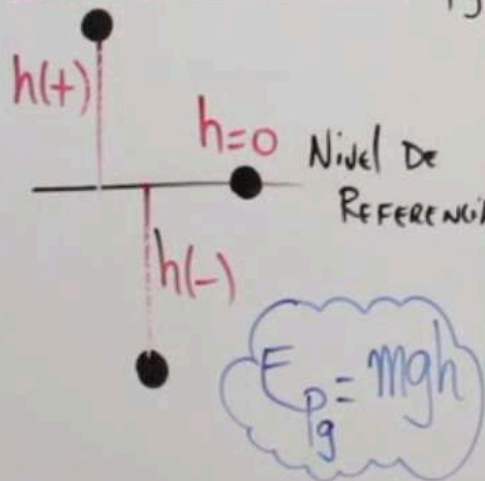 h(+)
h=0
Nivel De
REFERENCIA
h(-)
Epg = mgh